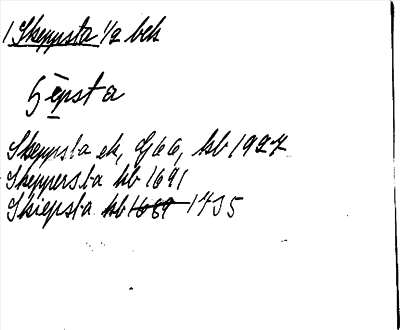 1 Skeppsta 1/2 bek
ʃɛ̀psta
Skeppsta ek, Gj 66, kb 1927
Skeppersta kb 1691
Skiepsta kb 1689 1735